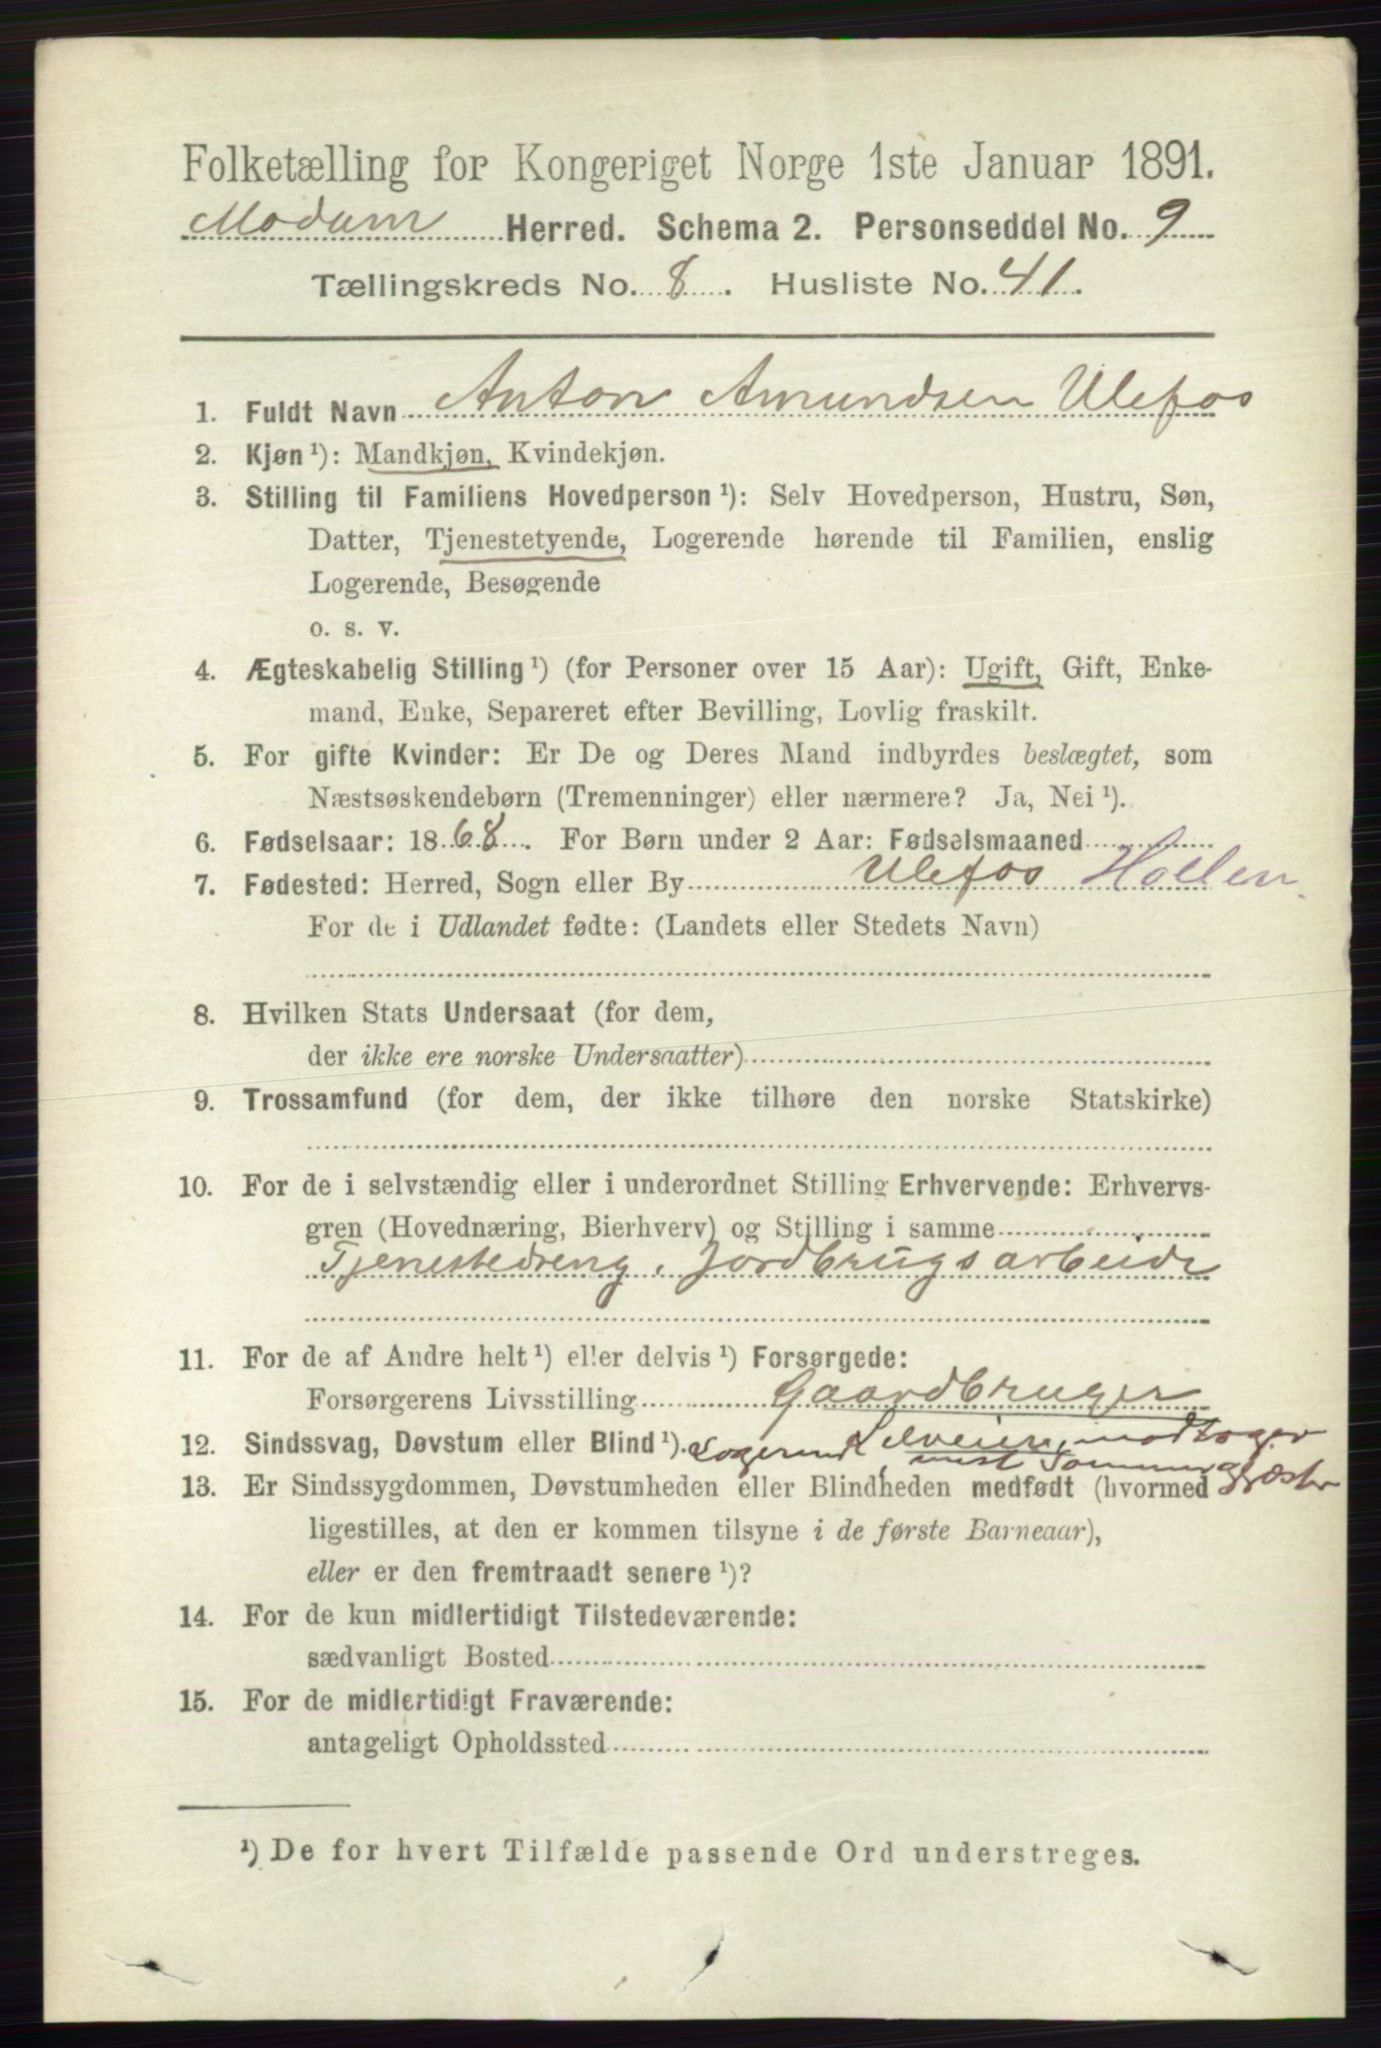 Folketælling for Kongeriget Norge 1ste Januar 1891.
Modum Herred. Schema 2. Personseddel No. 9
Tællingskreds No. 8. Husliste No. 41.
1. Fuldt Navn Anton Amundsen Ulefos
2. Kjøn ¹): Mandkjøn, Kvindekjøn.
3. Stilling til Familiens Hovedperson ¹): Selv Hovedperson, Hustru, Søn,
Datter, Tjenestetyende, Logerende hørende til Familien, enslig
Logerende, Besøgende
o. s. v.
4. Ægteskabelig Stilling ¹) (for Personer over 15 Aar): Ugift, Gift, Enke-
mand, Enke, Separeret efter Bevilling, Lovlig fraskilt.
5. For gifte Kvinder: Er De og Deres Mand indbyrdes beslægtet, som
Næstsøskendebørn (Tremenninger) eller nærmere? Ja, Nei ¹).
6. Fødselsaar: 1868. For Børn under 2 Aar: Fødselsmaaned
7. Fødested: Herred, Sogn eller By Ulefos Hollen.
For de i Udlandet fødte: (Landets eller Stedets Navn)
8. Hvilken Stats Undersaat (for dem,
der ikke ere norske Undersaatter)
9. Trossamfund (for dem, der ikke tilhøre den norske Statskirke)
10. For de i selvstændig eller i underordnet Stilling Erhvervende: Erhvervs-
gren (Hovednæring, Bierhverv) og Stilling i samme
Tjenestedreng, Jordbrugsarbeide
11. For de af Andre helt ¹) eller delvis ¹) Forsørgede:
Forsørgerens Livsstilling Gaardbruger
12. Sindssvag, Døvstum eller Blind ¹). Selveier, modtager
Logerende, mest Sommergjæster
13. Er Sindssygdommen, Døvstumheden eller Blindheden medfødt (hvormed
ligestilles, at den er kommen tilsyne i de første Barneaar),
eller er den fremtraadt senere ¹)?
14. For de kun midlertidigt Tilstedeværende:
sædvanligt Bosted
15. For de midlertidigt Fraværende:
antageligt Opholdssted
¹) De for hvert Tilfælde passende Ord understreges.